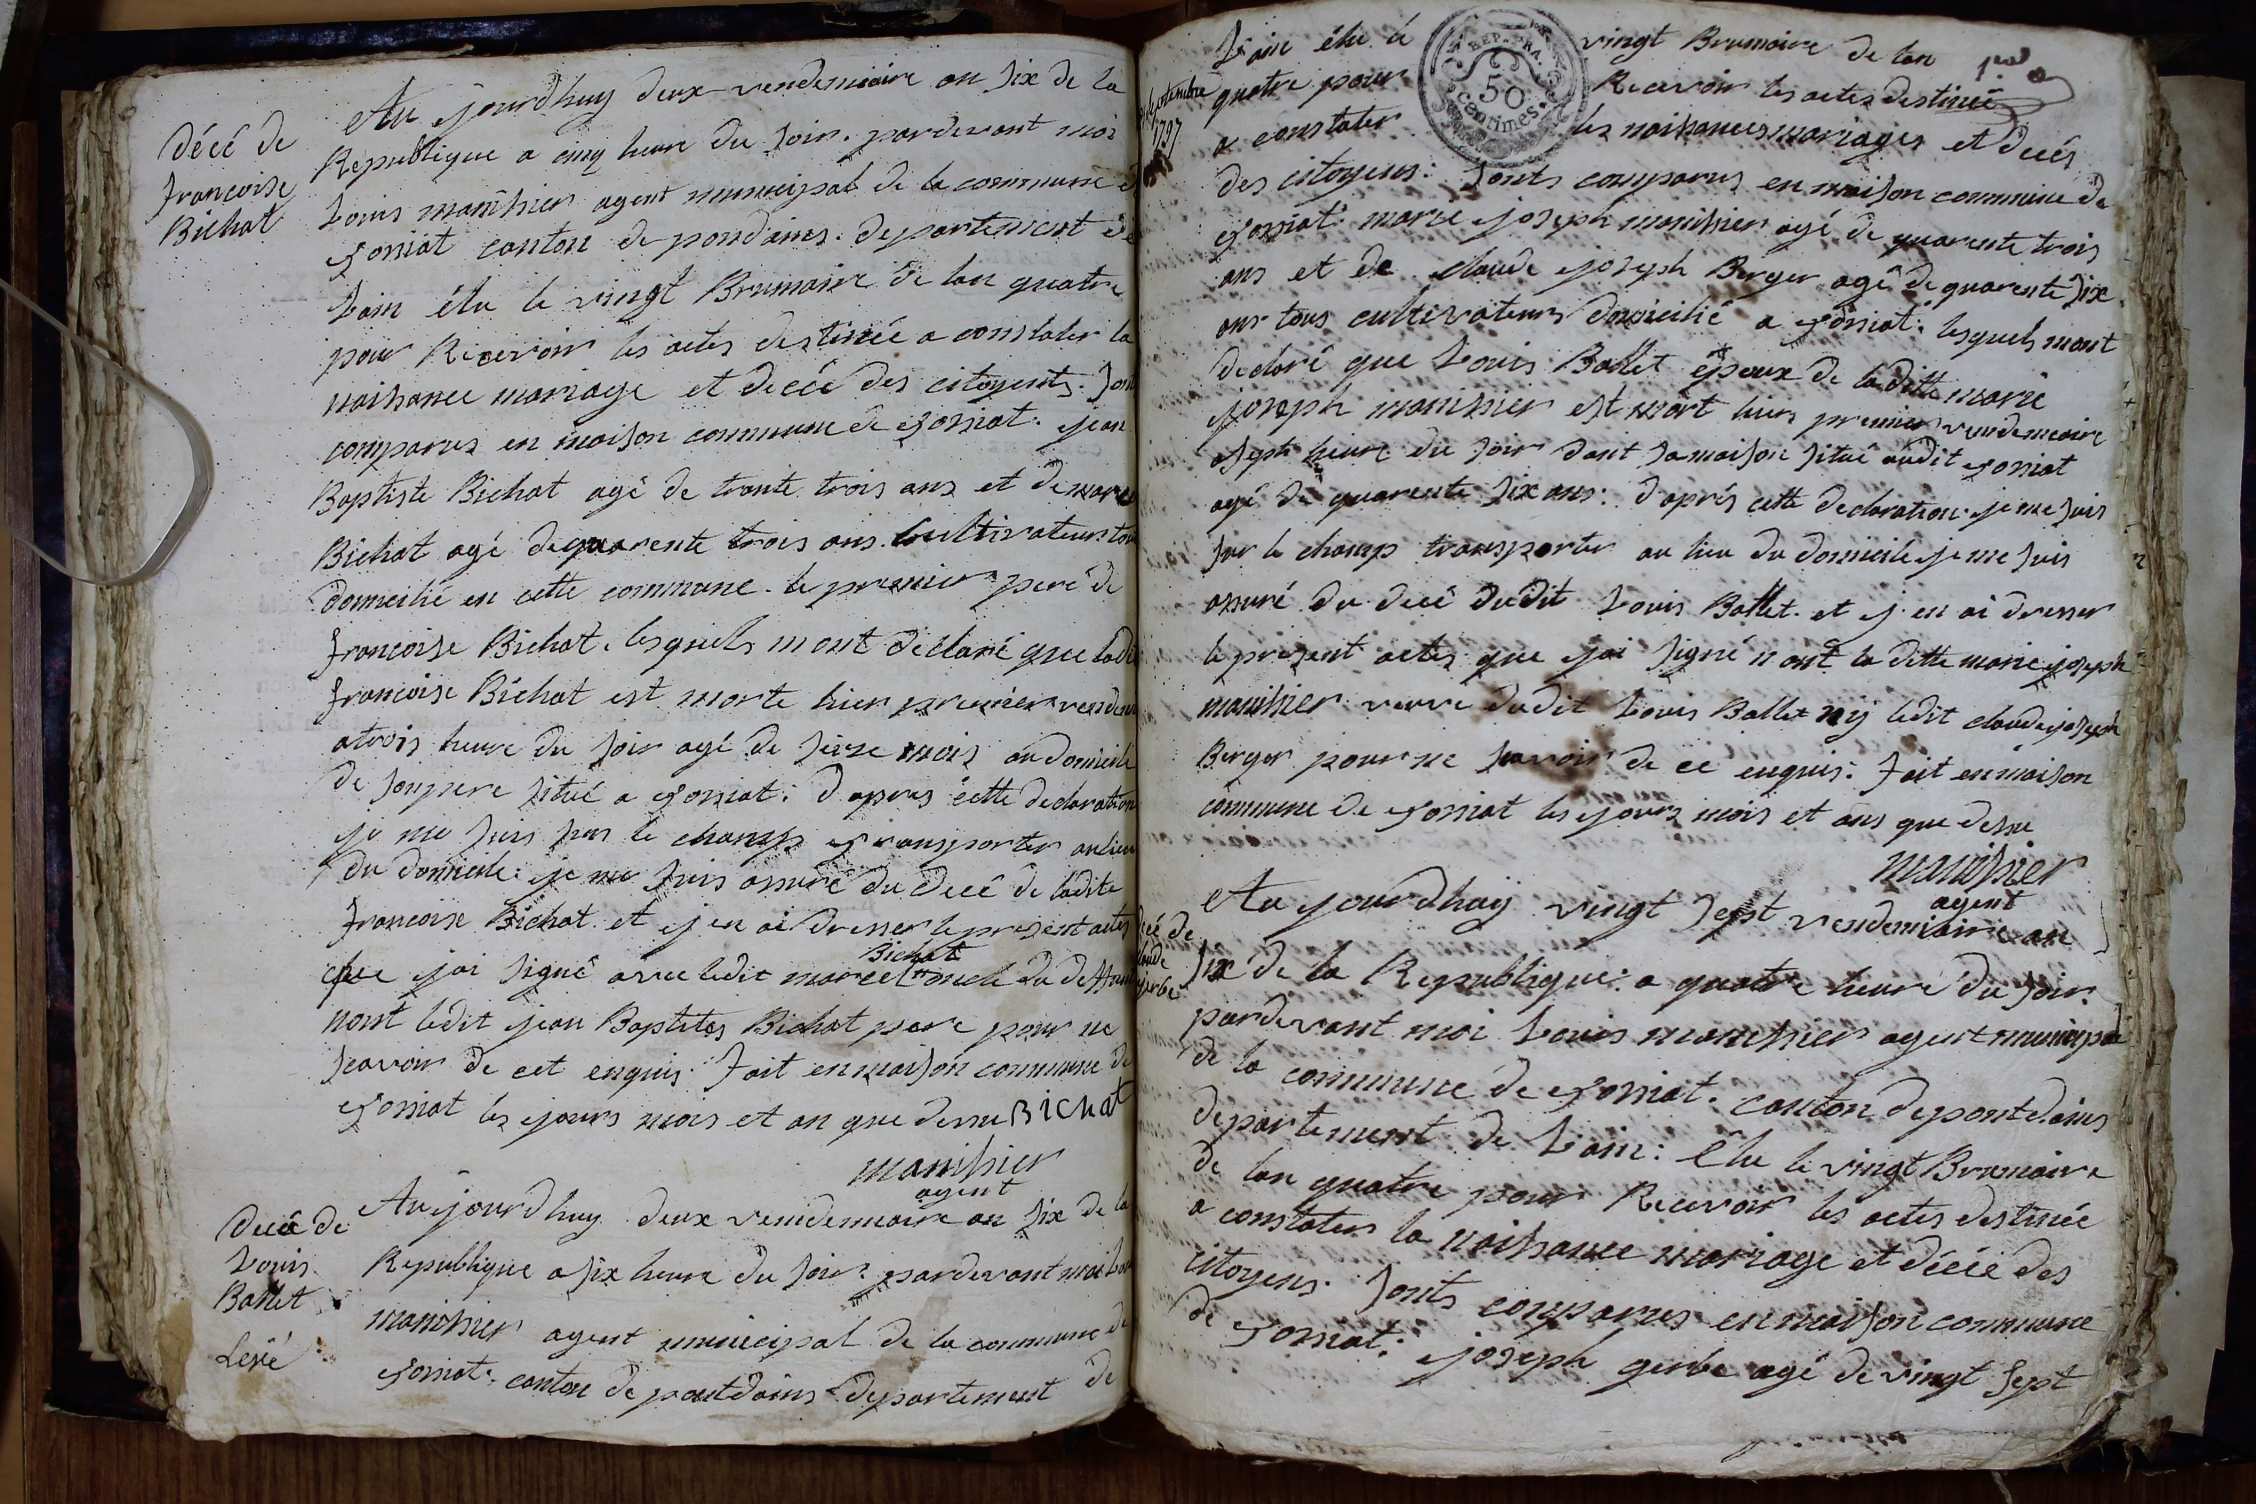 Décé de
françoise
Bichat
Au jourdhuy deux vendemiaire an six de la
Republique a cinq heure du soir. pardevant moi
Louis manihier agent municipal de la commune
jossiat canton de pondains. departement de
Lain élu le vingt Brumaire de lan quatre
pour Recevoir les actes destinée a constater la
naissance mariage et decée des citoyents. sont
comparus en maison commune de jossiat. jean
Baptiste Bichat agé de trante trois ans et de marcel
Bichat agé de quarente trois ans. Cultivateurs tous
domicilié en cette commune. le premier pere de
françoise Bichat. lesquels mont déclaré que ladite
françoise Bichat est morte hier premier vendem
atrois heure du soir agé de seize mois au domicile
de son pere situé a jossiat. d apres cette declaration
je me suis sur le champs transporter au lieu
du domicile. je me suis assuré du decé de ladite
françoise Bichat. et j en ai dresser le present actes
que jai signé avec ledit marcel Bichat oncle du deffunt
nont ledit jean Baptites Bichat pere pour ne
scavoir de cet enquis. fait en maison commune de
jossiat les jours mois et an que dessu Bichat
manihier
agent
Decé de
Louis
Ballet
Lexé
Aujourdhuy deux vendemiaire an six de la
Republique a six heure du soir. pardevant moi Louis
manihier agent municipal de la commune de
jossiat. canton de pontdains departement de
septembre
1797
REP. FRA.
50
centimes.
Lain élu le vingt Brumaire de lan
quatre pour Recevoir les actes destinée
a constater les naissances mariages et decés
des citoyens. sonts comparus en maison commune de
jossiat. marie joseph manihier agé de quarente trois
ans et de claude joseph Berger agé de quarente six
ans tous cultivateurs domicilié a jossiat. lesquels mont
declaré que Louis Ballet époux de laditte marie
joseph manihier est mort hiers premier vendemiaire
a sept heure du soir dant sa maison situé audit jossiat
agé de quarente six ans. d aprés cette declaration je me suis
sur le champ transporter au lieu du domicile je me suis
assuré du decé dudit Louis Ballet. et j en ai dresser
le présent actes que jai signé n ont la ditte marie joseph
manihier veuve dudit Louis Ballet ny ledit claude joseph
Berger pour ne scavoir de ce enquis. fait en maison
commune de jossiat les jours mois et ans que dessu
manihier
agent
decé de
claude
gerbe
Au jourdhuy vingt sept vendemiaire an
six de la Republique. a quatre heure du soir.
pardevant moi Louis manihier agent municipal
de la commune de jossiat. canton de pontdains
departement de Lain. élu le vingt Brumaire
de lan quatre pour Recevoir les actes destinée
a constater la naissance mariage et décée des
citoyens. sonts comparus en maison commune
de jossiat. joseph gerbe agé de vingt sept